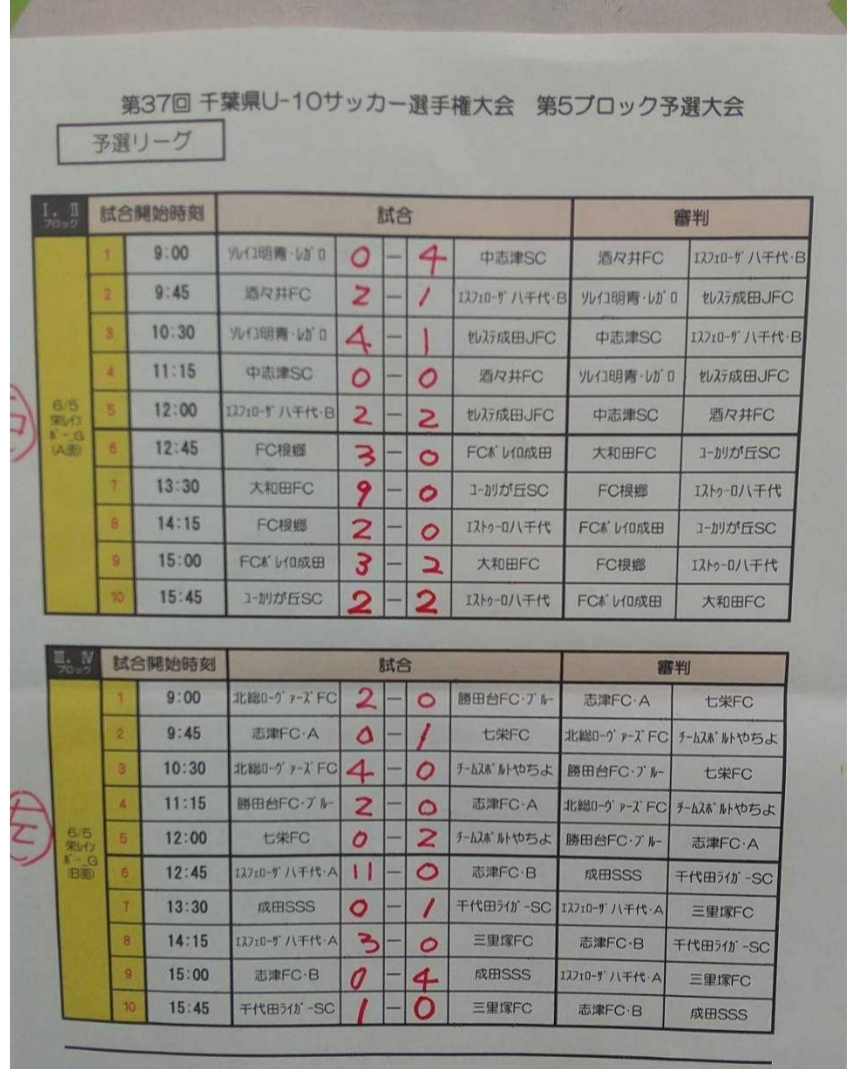 第37回 千葉県U-10サッカー選手権大会 第5ブロック予選大会
予選リーグ
Ⅰ. Ⅱ ブロック 試合開始時刻 試合 審判
6/5 栄レインボ-_G (A面)
1 9:00 ソレイユ明青・レガロ 0 - 4 中志津SC 酒々井FC エスフェローザ八千代・B
2 9:45 酒々井FC 2 - 1 エスフェローザ八千代・B ソレイユ明青・レガロ セレステ成田JFC
3 10:30 ソレイユ明青・レガロ 4 - 1 セレステ成田JFC 中志津SC エスフェローザ八千代・B
4 11:15 中志津SC 0 - 0 酒々井FC ソレイユ明青・レガロ セレステ成田JFC
5 12:00 エスフェローザ八千代・B 2 - 2 セレステ成田JFC 中志津SC 酒々井FC
6 12:45 FC根郷 3 - 0 FCボレイロ成田 大和田FC ユーカリが丘SC
7 13:30 大和田FC 9 - 0 ユーカリが丘SC FC根郷 エストゥーロ八千代
8 14:15 FC根郷 2 - 0 エストゥーロ八千代 FCボレイロ成田 ユーカリが丘SC
9 15:00 FCボレイロ成田 3 - 2 大和田FC FC根郷 エストゥーロ八千代
10 15:45 ユーカリが丘SC 2 - 2 エストゥーロ八千代 FCボレイロ成田 大和田FC
Ⅲ. Ⅳ ブロック 試合開始時刻 試合 審判
左
6/5 栄レインボ-_G (B面)
1 9:00 北総ローヴァーズFC 2 - 0 勝田台FC・ブルー 志津FC・A 七栄FC
2 9:45 志津FC・A 0 - 1 七栄FC 北総ローヴァーズFC チームスポルトやちよ
3 10:30 北総ローヴァーズFC 4 - 0 チームスポルトやちよ 勝田台FC・ブルー 七栄FC
4 11:15 勝田台FC・ブルー 2 - 0 志津FC・A 北総ローヴァーズFC チームスポルトやちよ
5 12:00 七栄FC 0 - 2 チームスポルトやちよ 勝田台FC・ブルー 志津FC・A
6 12:45 エスフェローザ八千代・A 11 - 0 志津FC・B 成田SSS 千代田ライガーSC
7 13:30 成田SSS 0 - 1 千代田ライガーSC エスフェローザ八千代・A 三里塚FC
8 14:15 エスフェローザ八千代・A 3 - 0 三里塚FC 志津FC・B 千代田ライガーSC
9 15:00 志津FC・B 0 - 4 成田SSS エスフェローザ八千代・A 三里塚FC
10 15:45 千代田ライガーSC 1 - 0 三里塚FC 志津FC・B 成田SSS